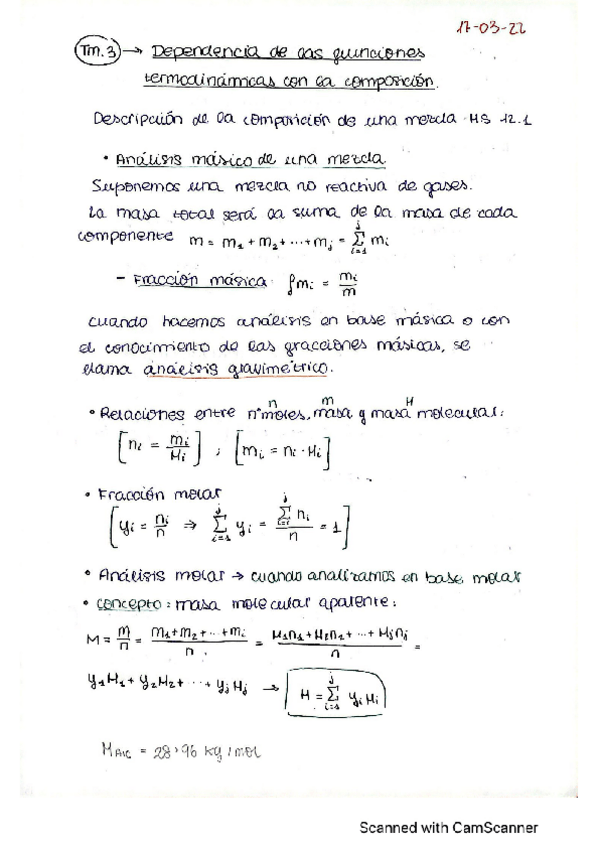 17-03-22
Tm.3 → Dependencia de las funciones
termodinámicas con la composición.
Descripción de la composición de una mezcla. MS 12.1
• Análisis másico de una mezcla.
Suponemos una mezcla no reactiva de gases.
La masa total será la suma de la masa de cada
componente m = m₁ + m₂ + ... + mⱼ = Σ_{i=1}^{j} mᵢ
- Fracción másica: fmᵢ = mᵢ/m
cuando hacemos análisis en base másica o con
el conocimiento de las gracciones másicas, se
llama análisis gravimétrico.
n m M
• Relaciones entre nºmoles, masa y masa molecular:
[nᵢ = mᵢ/Mᵢ] ; [mᵢ = nᵢ · Mᵢ]
• Fracción molar
[yᵢ = nᵢ/n ⇒ Σ_{i=1}^{j} yᵢ = Σ_{i=1}^{j} nᵢ / n = 1]
• Análisis molar → cuando analizamos en base molar
• concepto: masa molecular aparente:
M = m/n = (m₁ + m₂ + ... + mᵢ)/n = (M₁n₁ + M₂n₂ + ... + Mⱼnⱼ)/n =
y₁M₁ + y₂M₂ + ... + yⱼMⱼ → M = Σ_{i=1}^{j} yᵢMᵢ
= 28,96 kg/mol
Scanned with CamScanner